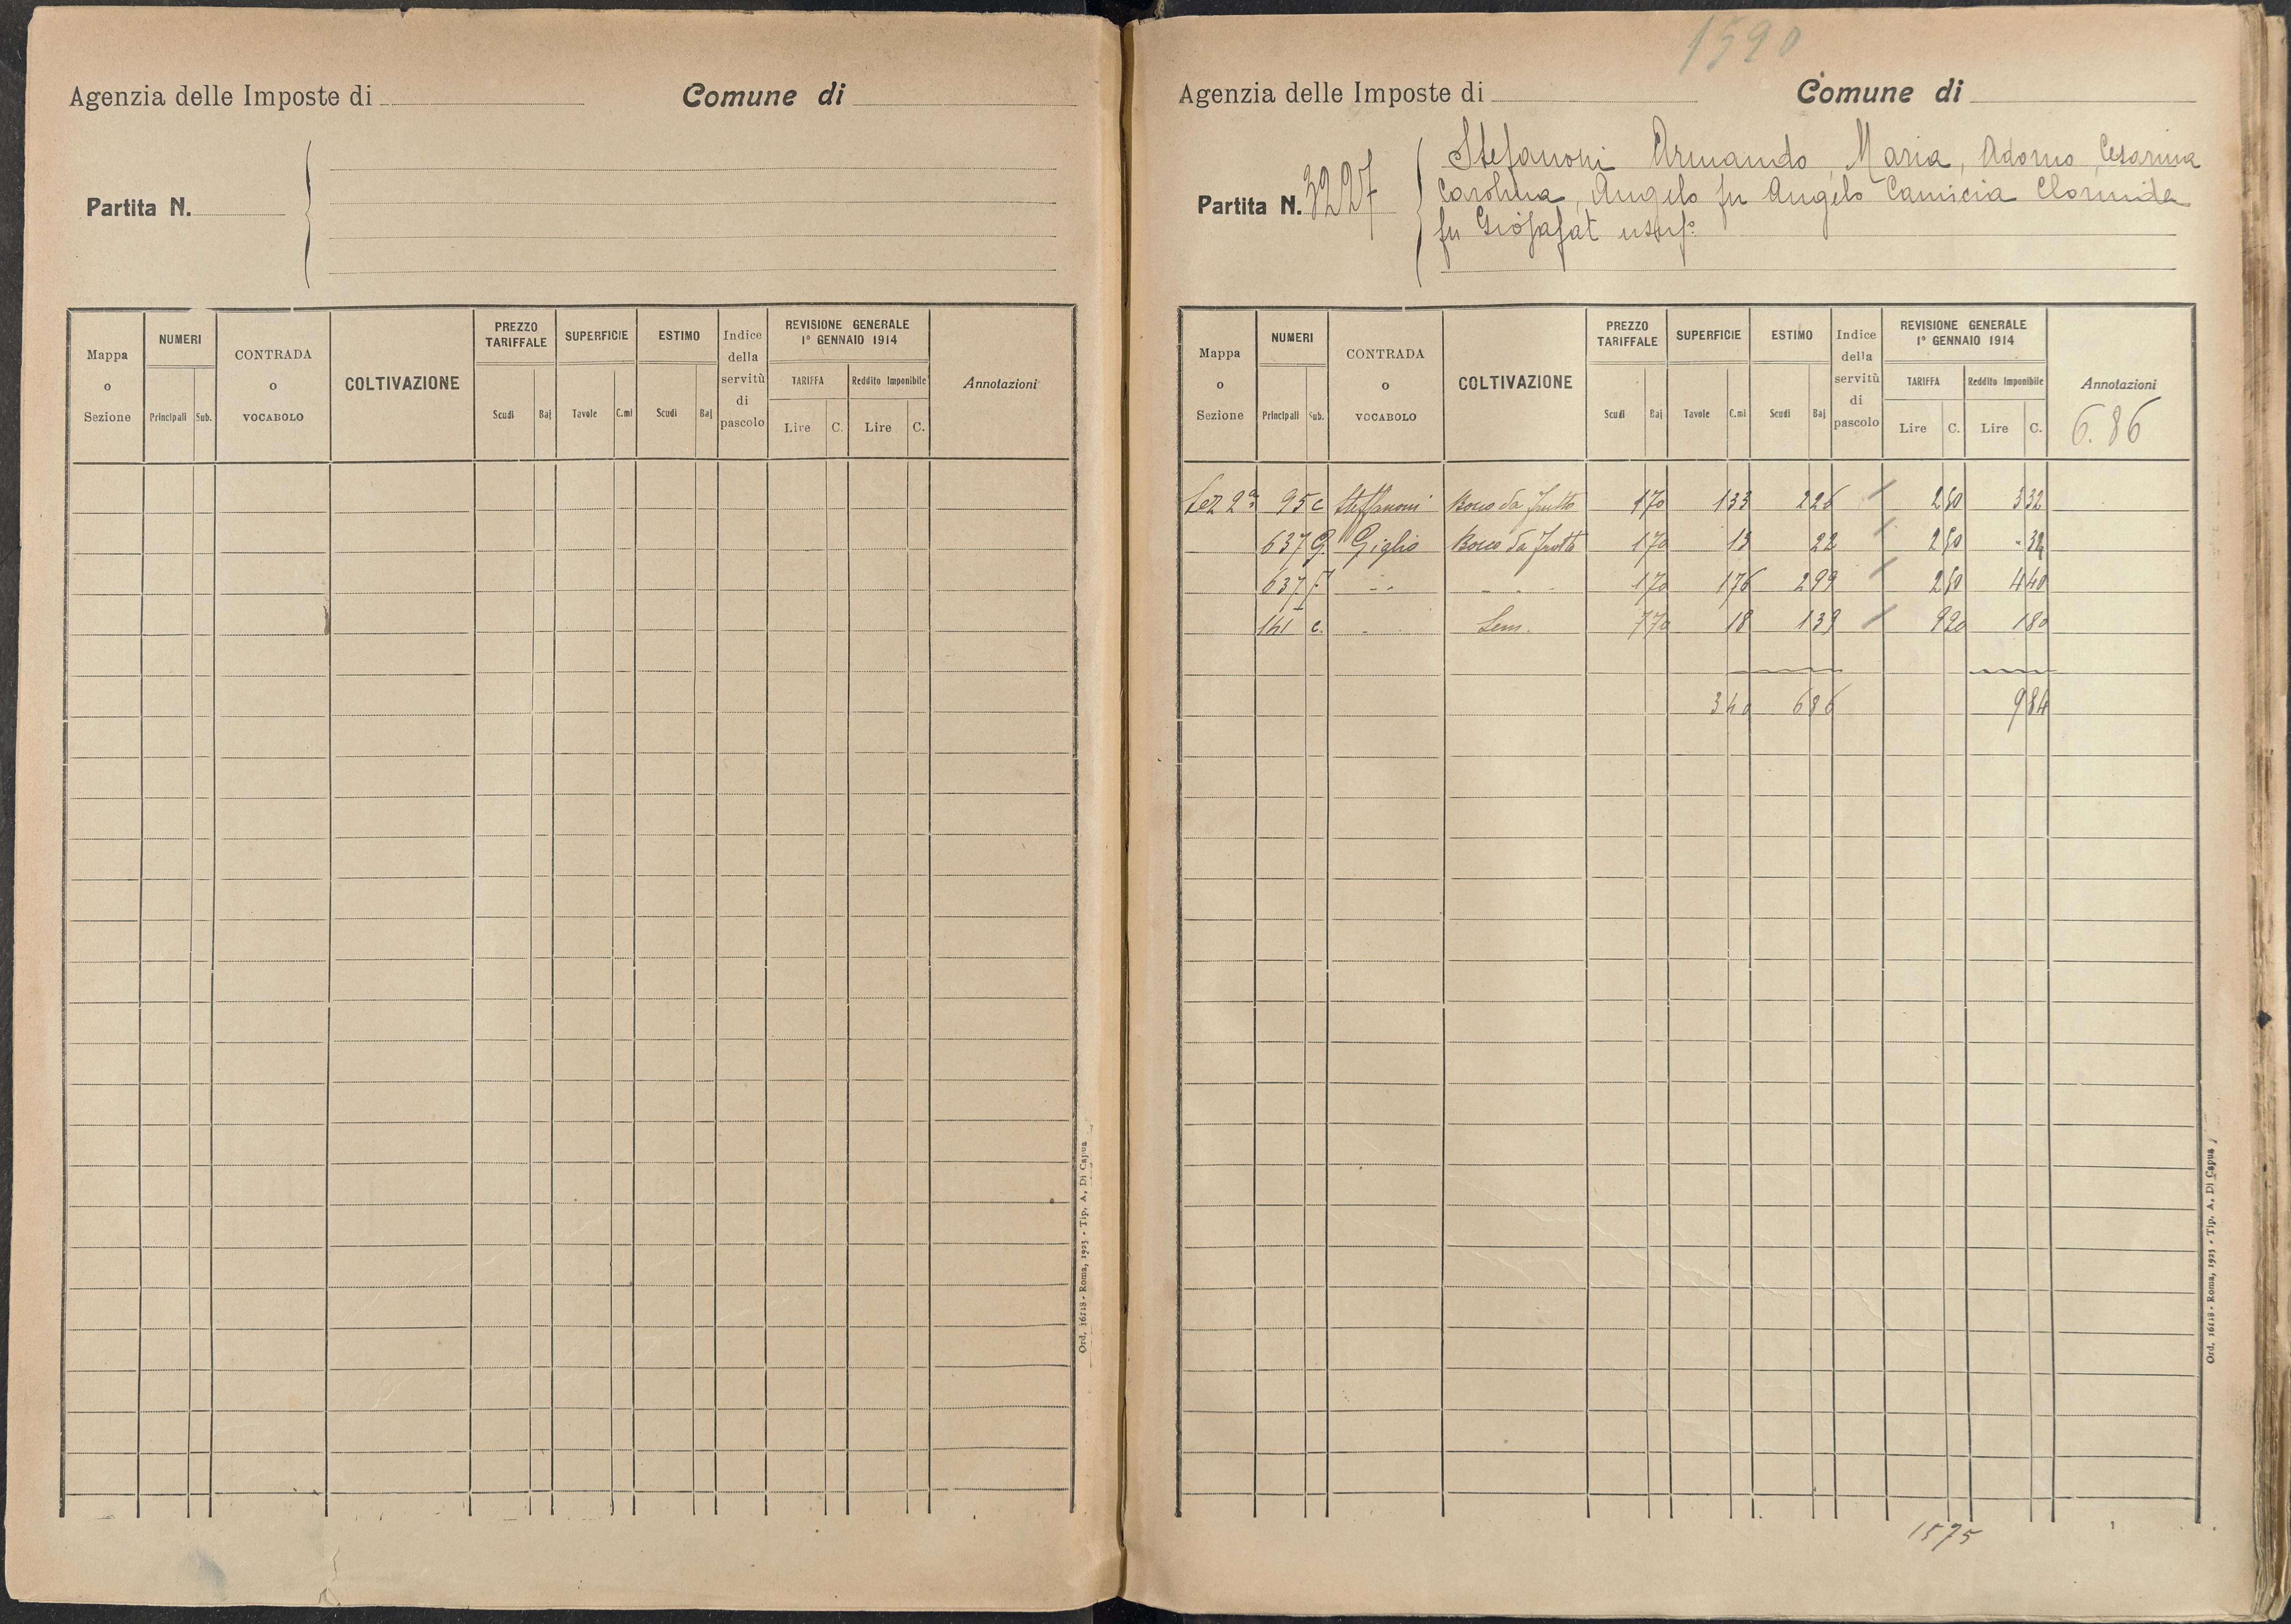 Agenzia delle Imposte di Comune di
Partita N.
Mappa o Sezione NUMERI Principali Sub. CONTRADA o VOCABOLO COLTIVAZIONE PREZZO TARIFFALE Scudi Baj SUPERFICIE Tavole C.mi ESTIMO Scudi Baj Indice della servitù di pascolo REVISIONE GENERALE 1° GENNAIO 1914 TARIFFA Lire C. Reddito Imponibile Lire C. Annotazioni
Ord. 16118 - Roma, 1923 - Tip. A. Di Capua
1590
Agenzia delle Imposte di Comune di
Partita N. 3227
Stefanoni Armando, Maria, Adorno, Cesarina
Carolina, Angelo fu Angelo Camicia Clorinda
fu Giosafat usuf°
Mappa o Sezione NUMERI Principali Sub. CONTRADA o VOCABOLO COLTIVAZIONE PREZZO TARIFFALE Scudi Baj SUPERFICIE Tavole C.mi ESTIMO Scudi Baj Indice della servitù di pascolo REVISIONE GENERALE 1° GENNAIO 1914 TARIFFA Lire C. Reddito Imponibile Lire C. Annotazioni
6.86
Sez 2ª 95 c Steffanoni Bosco da frutto 1 70 1 33 2 26 2 50 3 32
637 G Giglio Bosco da frutto 1 70 13 22 2 50 - 32
637 F 1 70 1 76 2 99 2 50 4 40
141 c. Sem. 7 70 18 1 39 9 20 1 80
3 40 6 86 9 84
1575
Ord. 16118 - Roma, 1923 - Tip. A. Di Capua